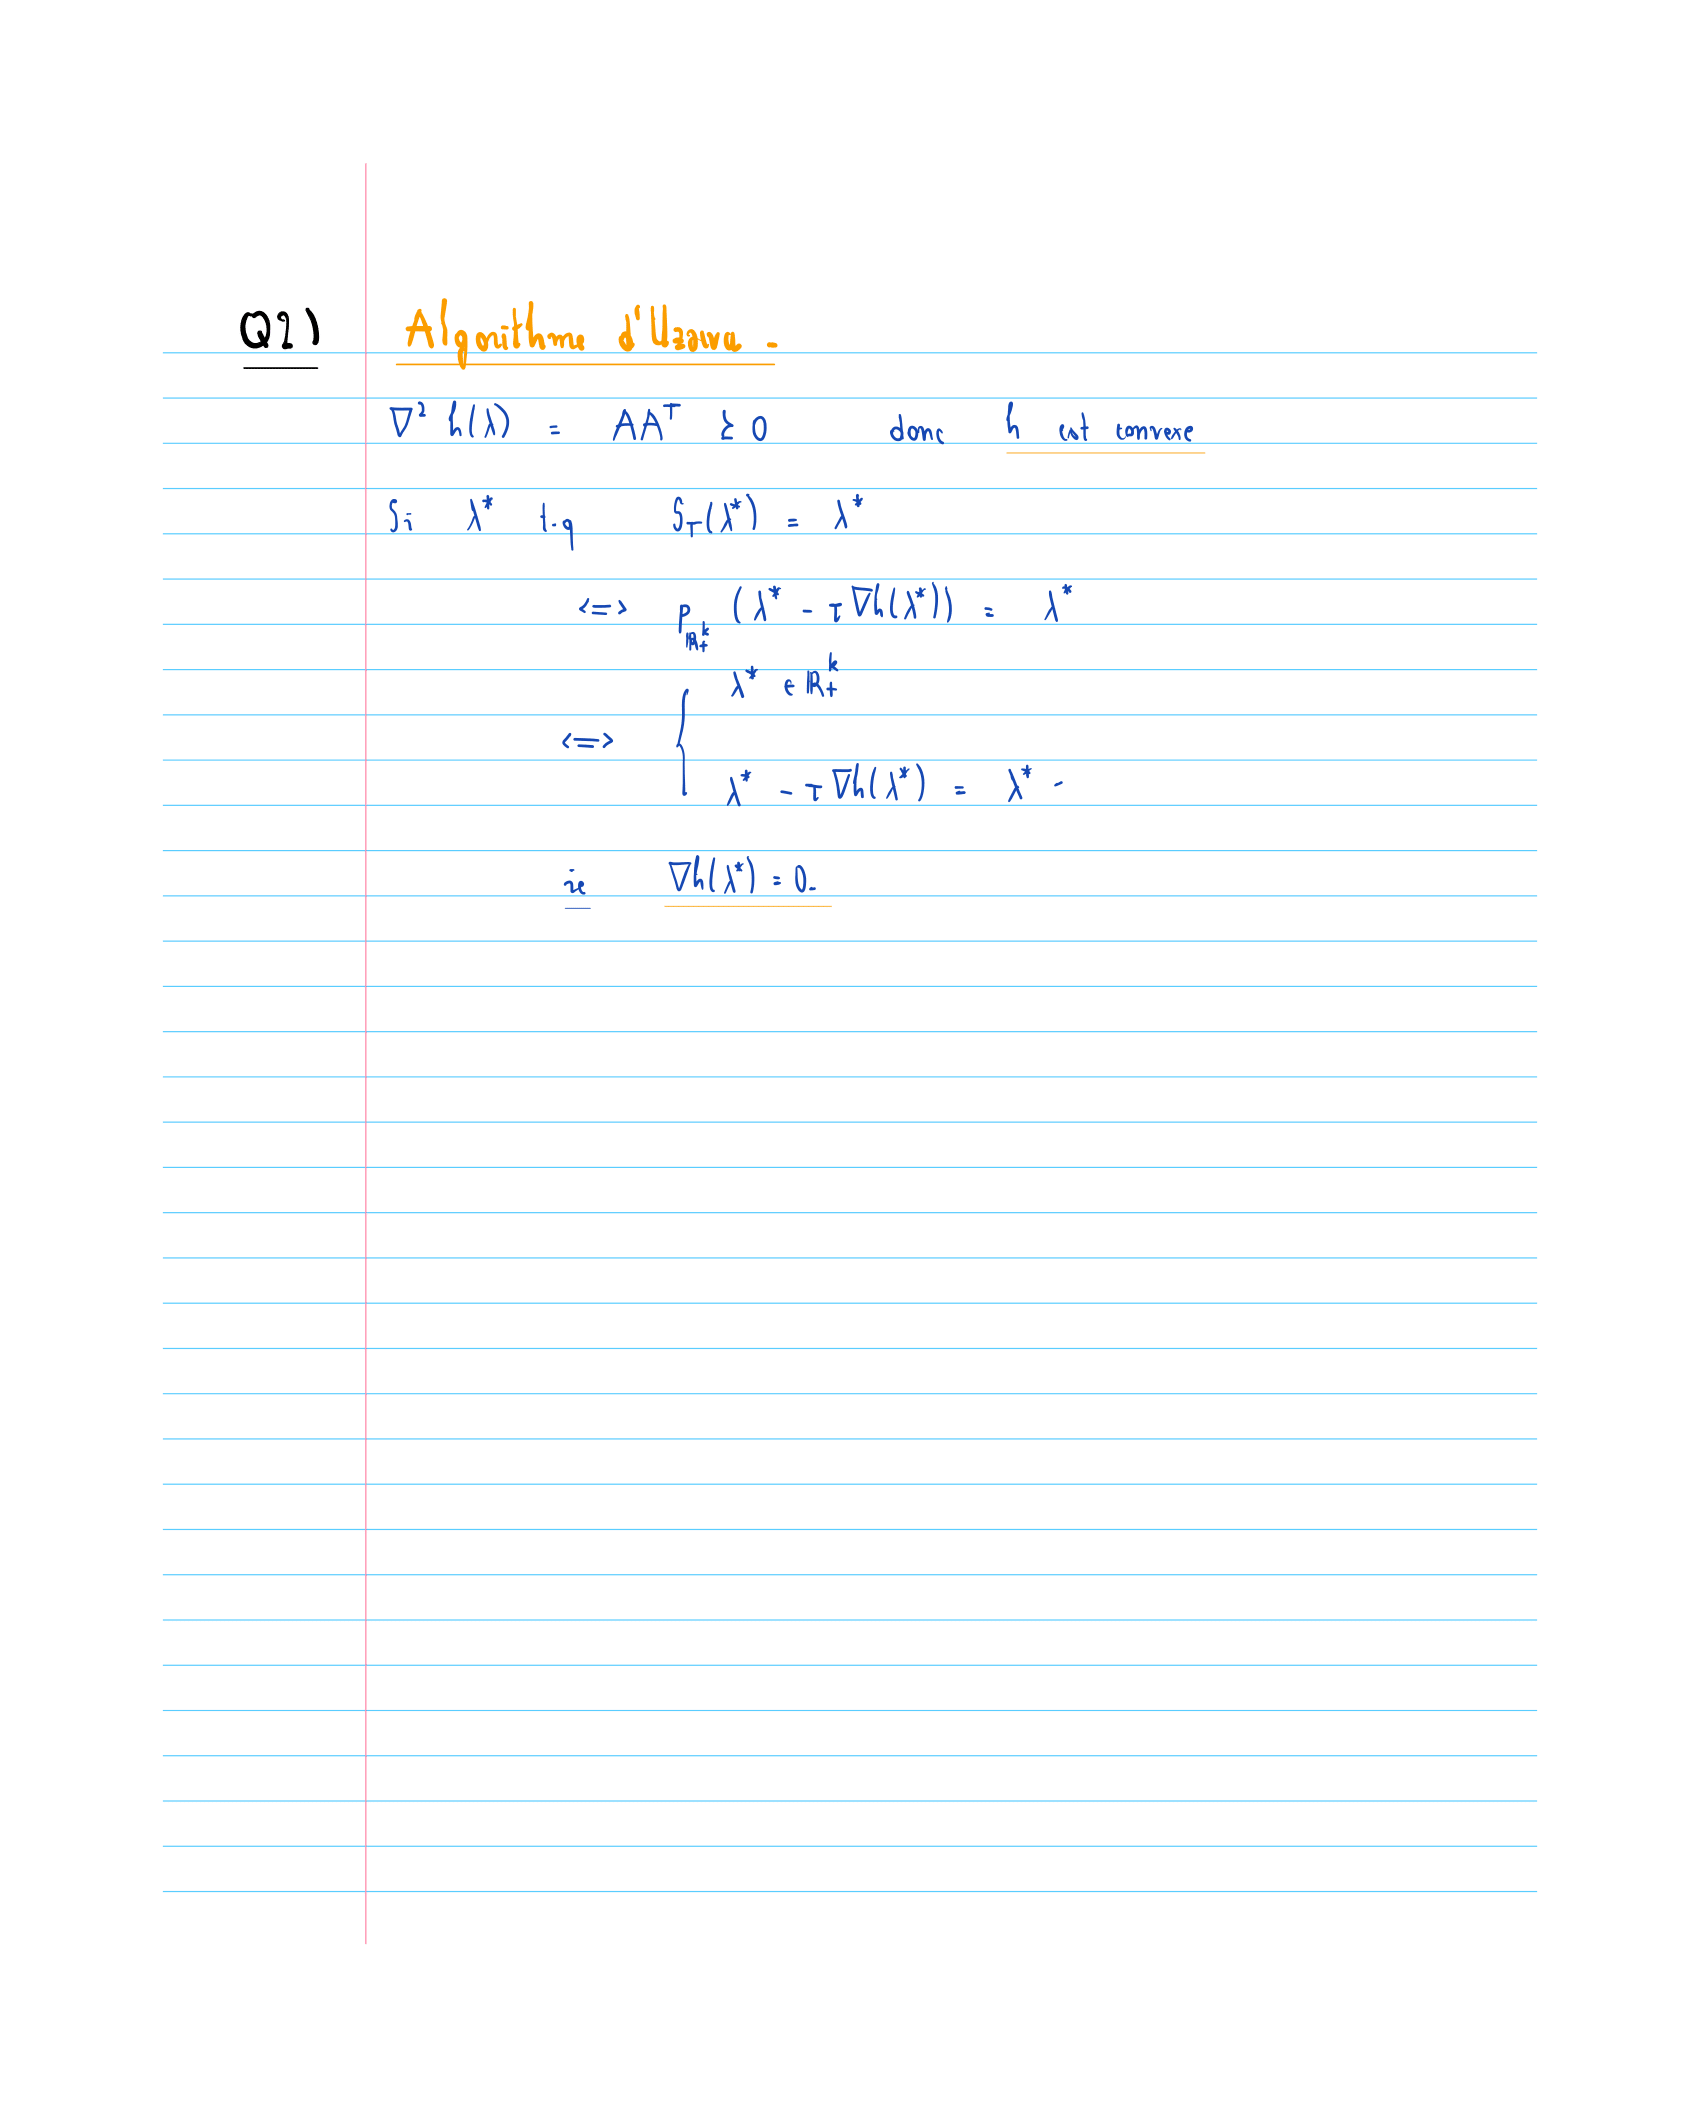 Q21) Algorithme d'Uzawa.
∇² h(λ) = AAᵀ ≥ 0 donc h est convexe
Si λ* t.q S_τ(λ*) = λ*
<=> P_{ℝ₊ᵏ} (λ* - τ∇h(λ*)) = λ*
λ* ∈ ℝ₊ᵏ
<=> {
λ* - τ∇h(λ*) = λ* -
ie ∇h(λ*) = 0.